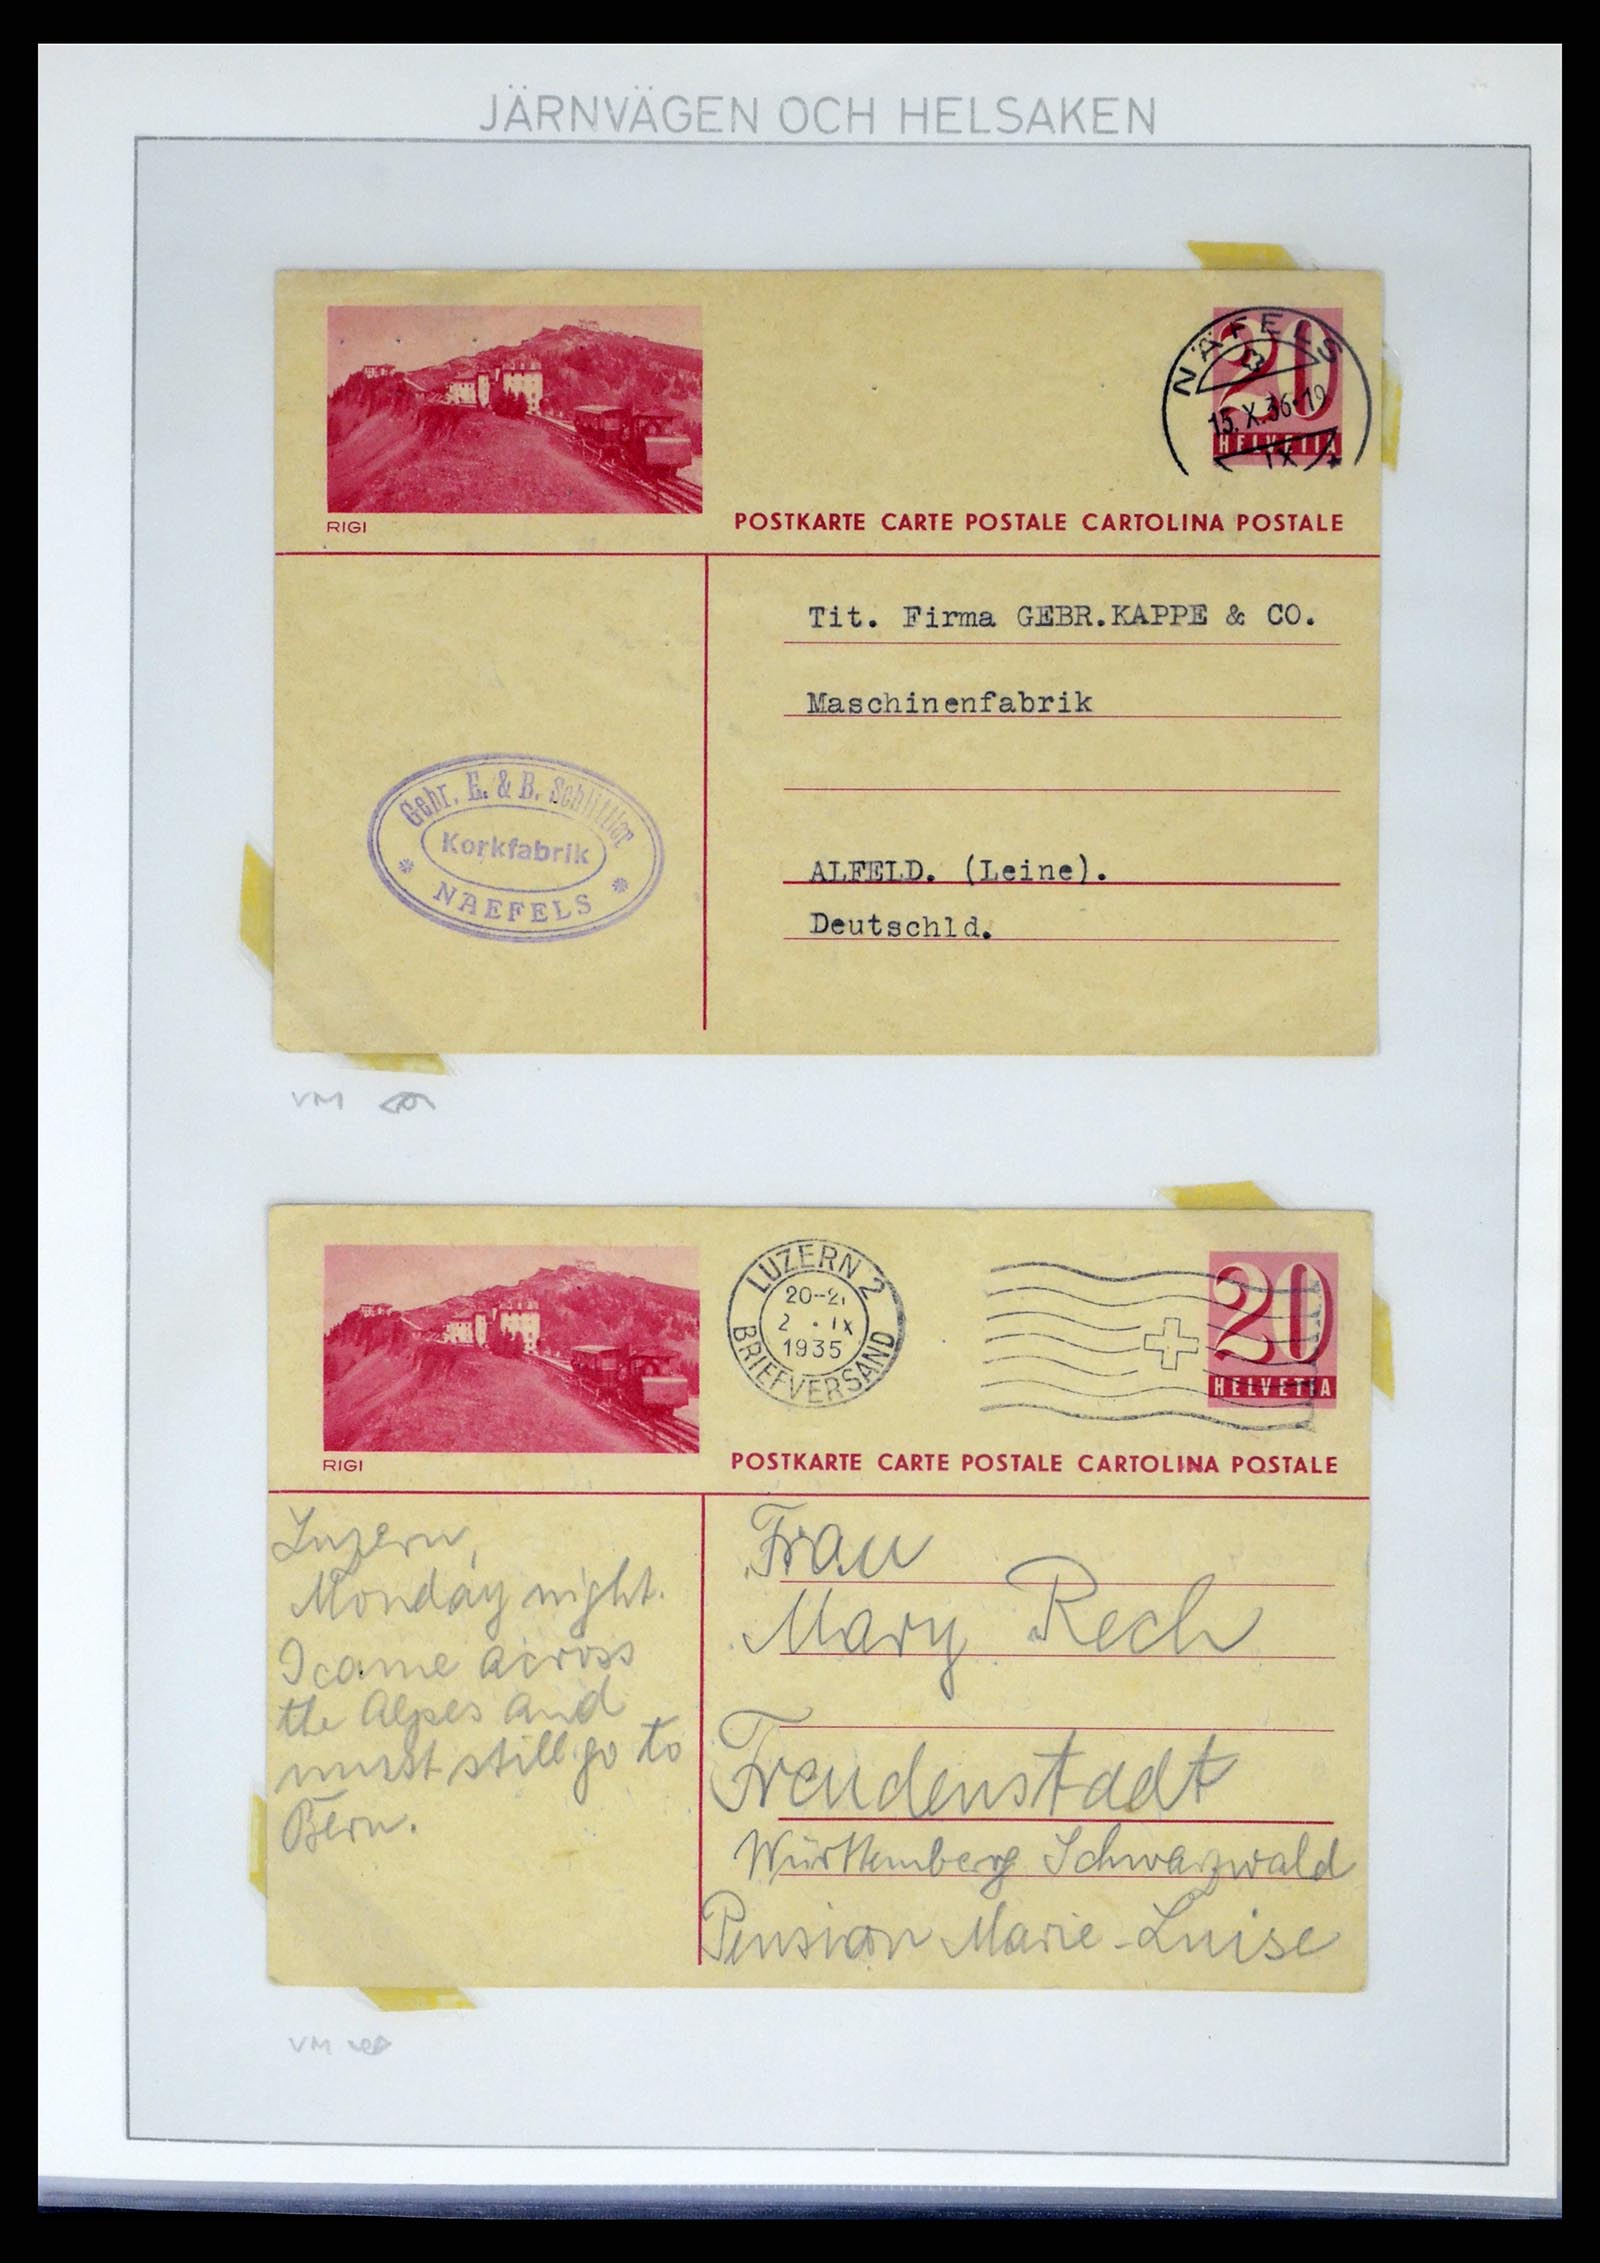 JÄRNVÄGEN OCH HELSAKEN
20
HELVETIA
NÄFELS
15.X.36
IX
RIGI
POSTKARTE CARTE POSTALE CARTOLINA POSTALE
Tit. Firma GEBR.KAPPE & CO.
Maschinenfabrik
Gebr. E. & B. Schlittler
Korkfabrik
NAEFELS
ALFELD. (Leine).
Deutschld.
VM
LUZERN 2
20-21
2 . IX
1935
BRIEFVERSAND
20
HELVETIA
RIGI
POSTKARTE CARTE POSTALE CARTOLINA POSTALE
Luzern,
Monday night.
I came across
the Alpes and
must still go to
Bern.
Frau
Mary Rech
Freudenstadt
Württemberg Schwarzwald
Pension Marie-Luise
VM